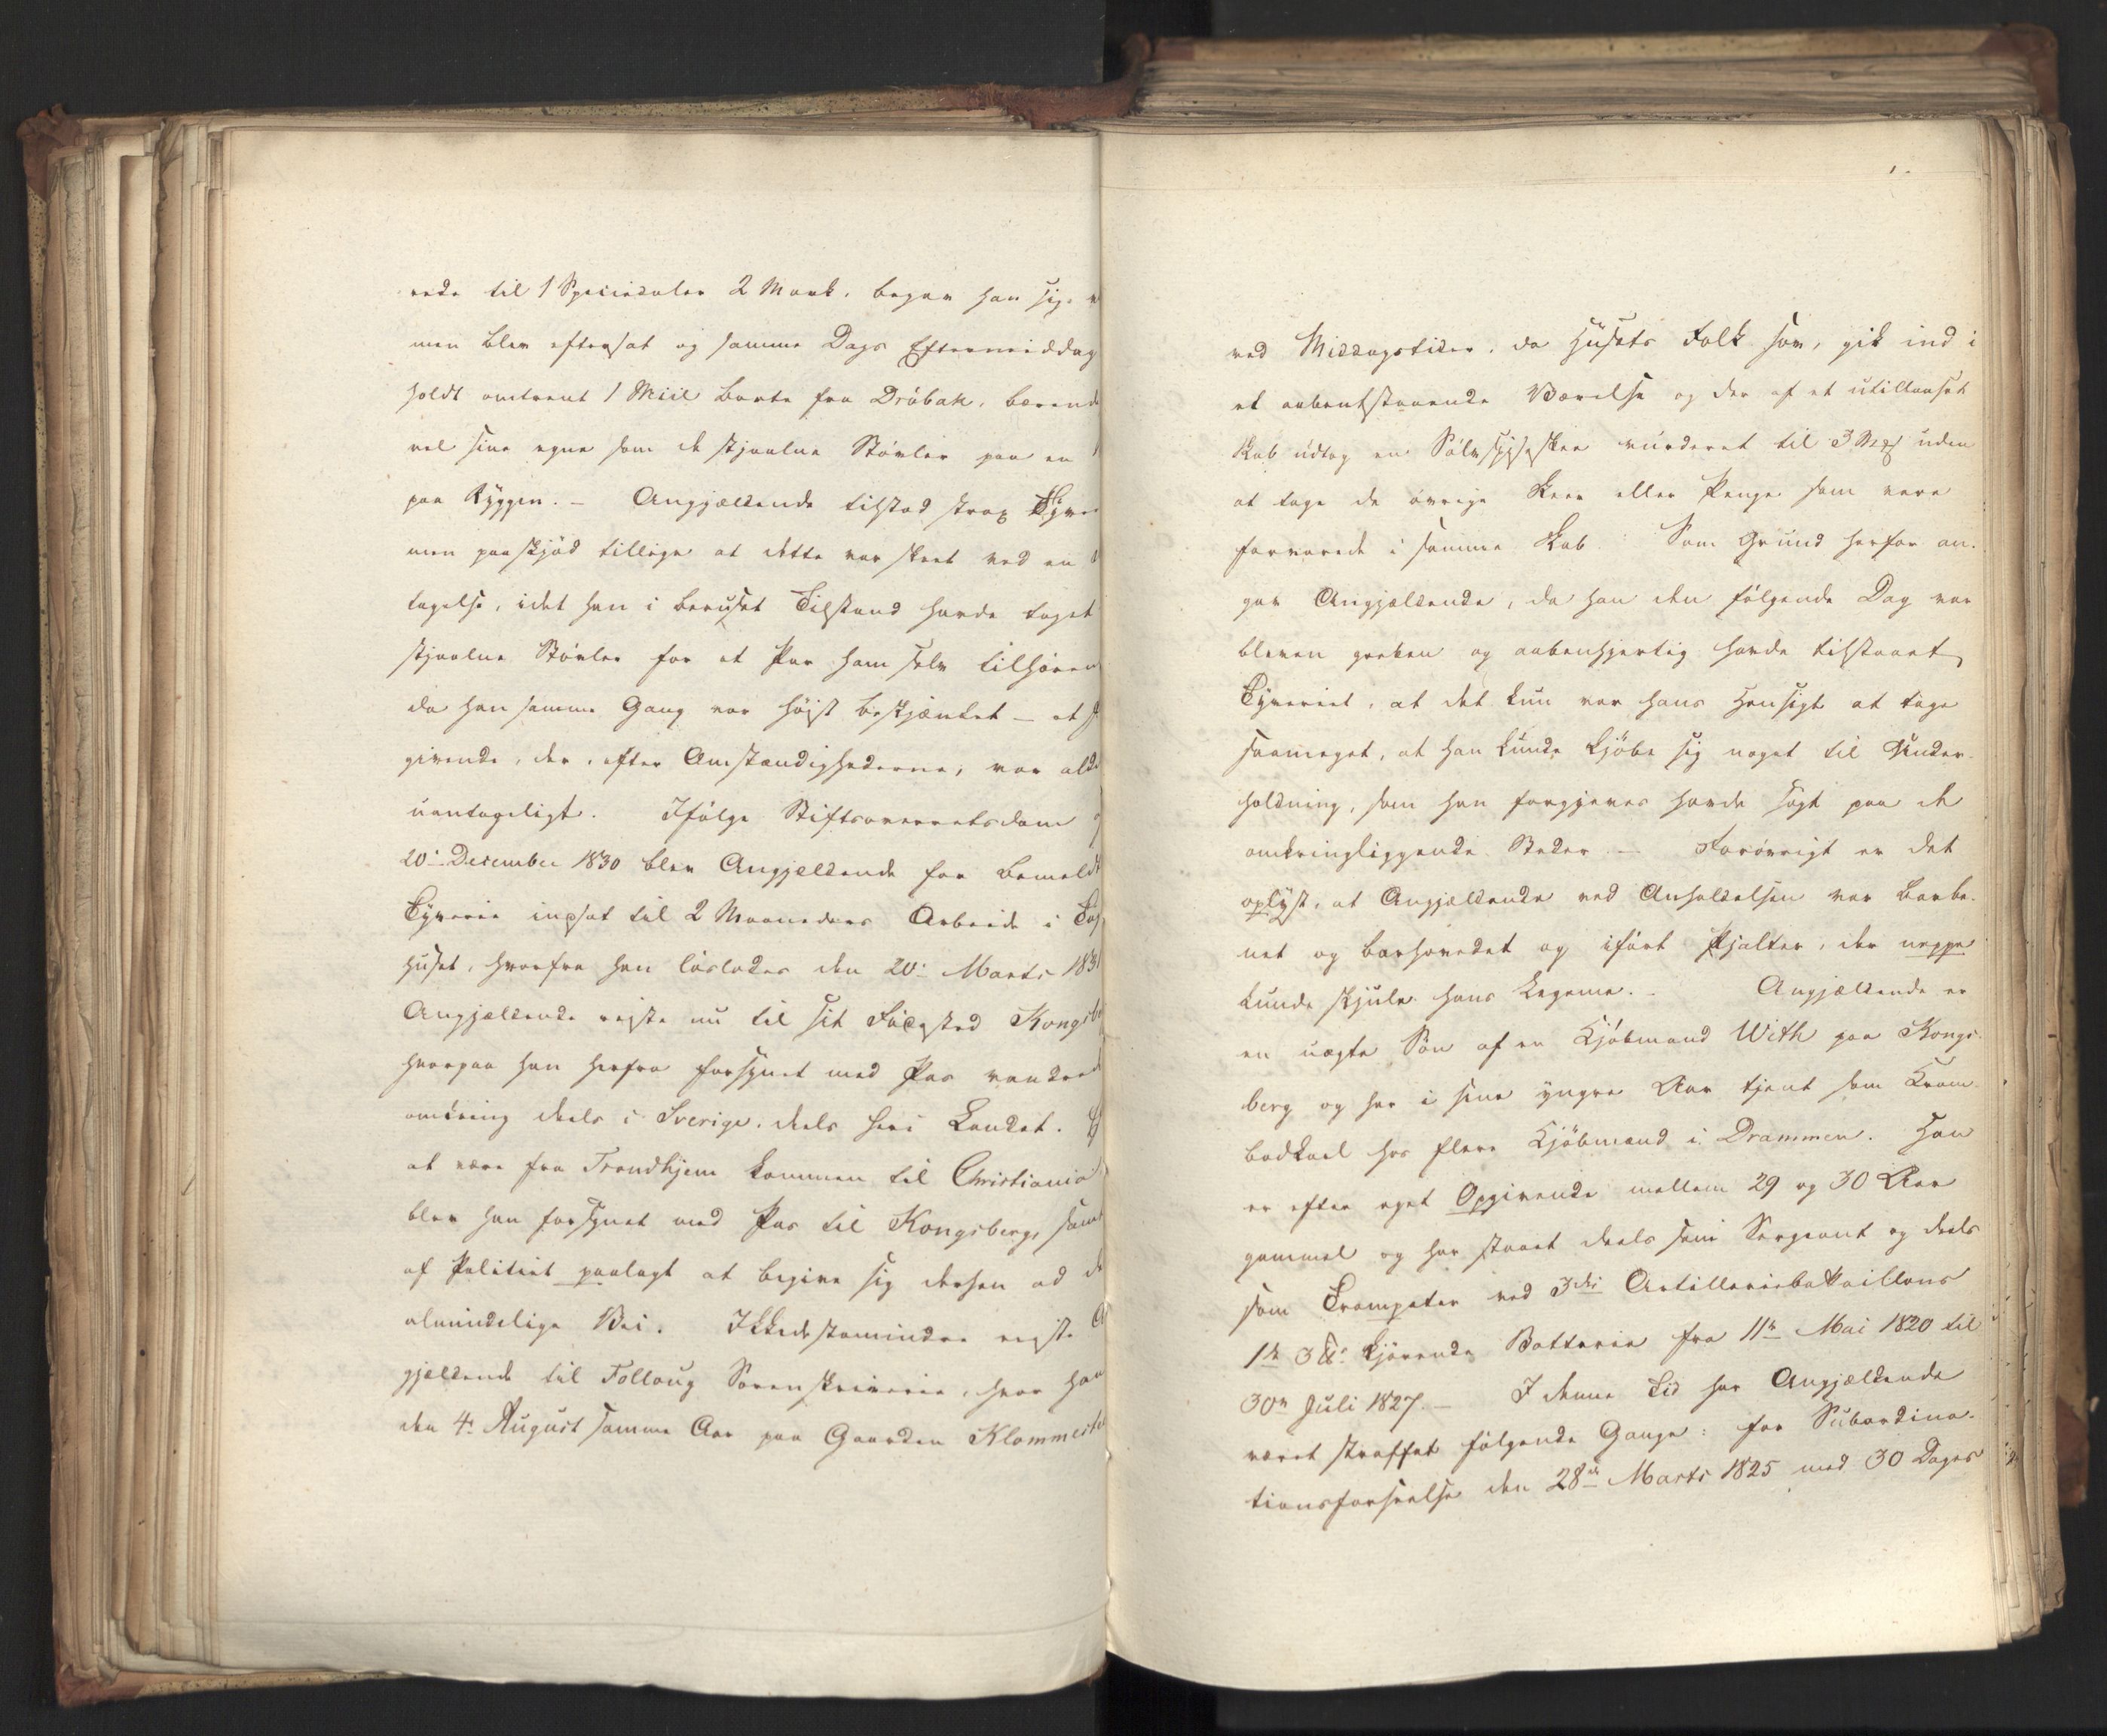 rede til 1 Speciedaler 2 Mark, begav han sig
men blev eftersat og samme Dags Eftermiddag
holdt omtrent 1 Miil borte fra Dröbak, bærende
vel sine egne som de stjaalne Støvler paa en
paa Ryggen. – Angjældende tilstod strax Tyve
men paaskjød tillige at dette var skeet ved en
tagelse, idet han i beruset Tilstand havde taget
stjaalne Støvler for et Par ham selv tilhøren
da han samme Gang var høist beskjænket – et
givende, der, efter Omstændighederne, var alde
uantageligt. Ifølge Stiftsoverretsdom
20de December 1830 blev Angjeldende for bemeldt
Tyverie indsat til 2 Maaneders Arbeide i
huset, hvorfra han løslodes den 20de Marts 1831
Angjældende reiste nu til sit Födested Kongsbe
hvorpaa han herfra forsynet med Pas vandred
omkring deels i Sverige, deels her i Landet.
at være fra Trondhjem kommen til Christiania
blev han forsynet med Pas til Kongsberg, samt
af Politiet paalagt at begive sig dersen ad d
almindelige Vei. Ikkedestomindre reiste
gjældende til Folloug Sorenskriverie, hvor han
den 4de August samme Aar paa Gaarden Klommeste
ved Middagstider, da Husets Folk sov, gik ind i
et aabentstaaende Værelse og der af et utillaaset
Skab udtog en Sølvspiseskee vurderet til 3 uden
at tage de øvrige Skeer eller Penge som vare
forvarede i samme Skab. Som Grund herfor an-
gav Angjældende, da han den følgende Dag var
bleven greben og aabenhjertig havde tilstaaet
Tyveriet, at det kun var hans Hensigt at tage
saameget, at han kunde kjöbe sig noget til Under-
holdning, som han forgjeves havde søgt paa de
omkringliggende Steder. – Forøvrigt er det
oplyst, at Angjældende ved Anholdelsen var barbe-
net og barhovedet og iført Pjalter, der neppe
kunde skjule hans Legeme. – Angjældende er
en uægte Søn af en Kjöbmand With paa Kongs-
berg og har i sine yngre Aar tjent som Kram-
bodkarl hos flere Kjöbmænd i Drammen. Han
er efter eget Opgivende mellem 29 og 30 Aar
gammel og har staaet deels som Sergeant og deels
som Trompeter ved 3die Artilleriebattaillons
1ste 3 kjørende Batterie fra 11te Mai 1820 til
30te Juli 1827. – I denne Tid har Angjældende
været straffet følgende Gange: for Subordina-
tionsforseelse den 28de Marts 1825 med 30 Dages